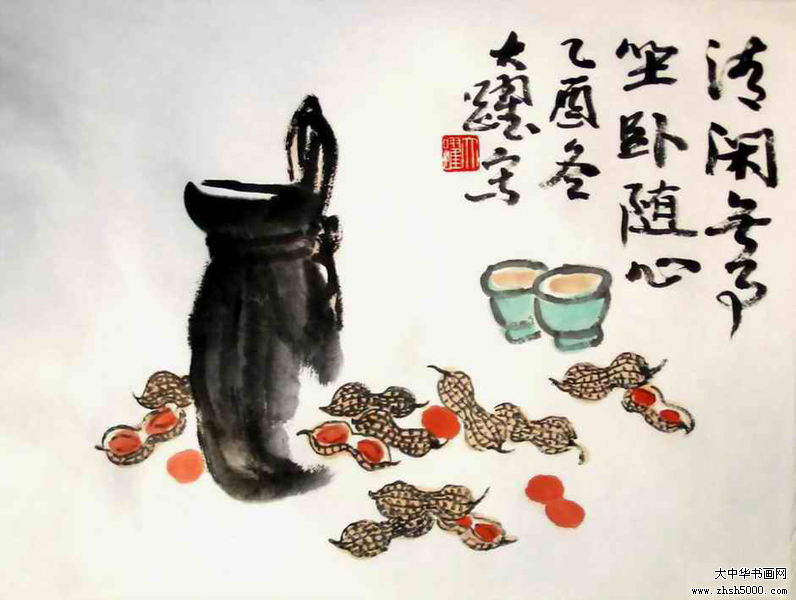 清闲无事
坐卧随心
乙酉冬
大躍写
大躍
大中华书画网
www.zhsh5000.com